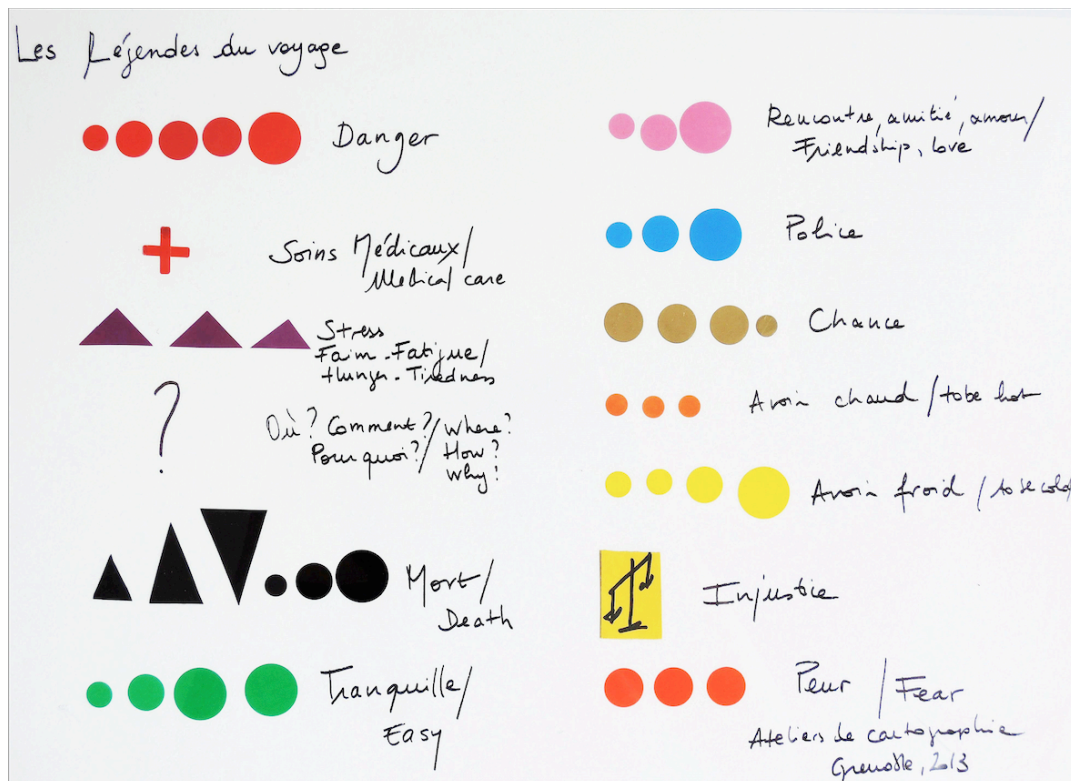 Les Légendes du voyage
Danger
Soins Médicaux/
Medical care
Stress
Faim - Fatigue/
Hunger - Tiredness
?
Où? Comment?/Where?
Pourquoi?/How?
Why?
Mort/
Death
Tranquille/
Easy
Rencontre, amitié, amour/
Friendship, love
Police
Chance
Avoir chaud/to be hot
Avoir froid/to be cold/
Injustice
Peur / Fear
Ateliers de cartographie
Grenoble, 2013